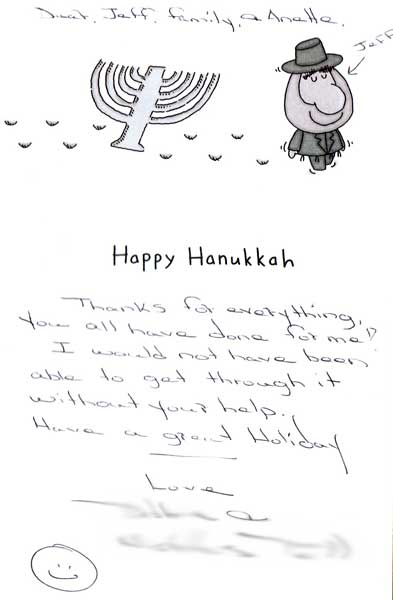 Dear, Jeff, family, & Anette,
Jeff
Happy Hanukkah
Thanks for everything,
you all have done for me!!
I would not have been
able to get through it
without your help.
Have a great Holiday
Love